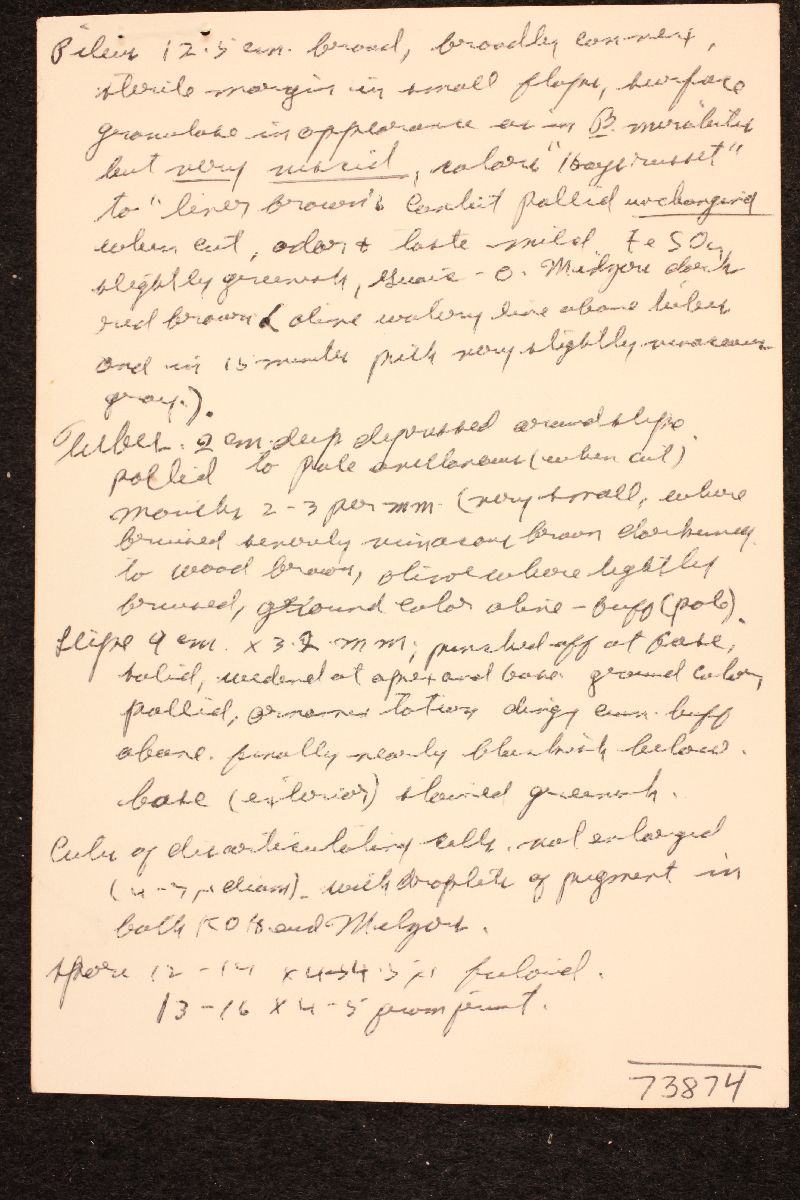 Pileus 12.5 cm. broad, broadly convex,
sterile margin in small flaps, surface
granulose in appearance as in B. mirabilis
but very viscid, colors "bay russet"
to "liver brown". Context pallid unchanging
when cut, odor & taste mild FeSO4
slightly greenish, guaic - 0. Melzers dark
red brown & olive watery line above tubes
and in 15 minutes pith very slightly vinaceous
gray.).
Tubes. 2 cm. deep depressed around stipe
pallid to pale avellaneous (when cut)
mouths 2-3 per mm. (very small, where
bruised vinaceous brown
to wood brown, olive where lightly
bruised, ground color olive-buff (pale).
Stipe 9 cm. x 3.2 mm; pinched off at base,
solid, widened at apex and base ground color
pallid, ornamentation dingy cinn. buff
above. finally nearly blackish below.
base (exterior) stained greenish.
Cutis of disarticulating cells. not enlarged
(4-7 µ diam). with droplets of pigment in
both KOH and Melzers.
Spore 12-14 x 4-4.5 µ
13-16 x 4-5 from print.
73874